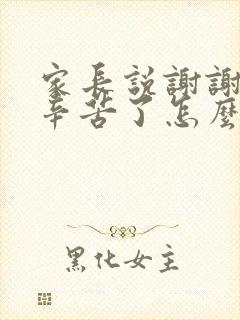 家長説謝謝
辛苦了怎麽
黑化女主